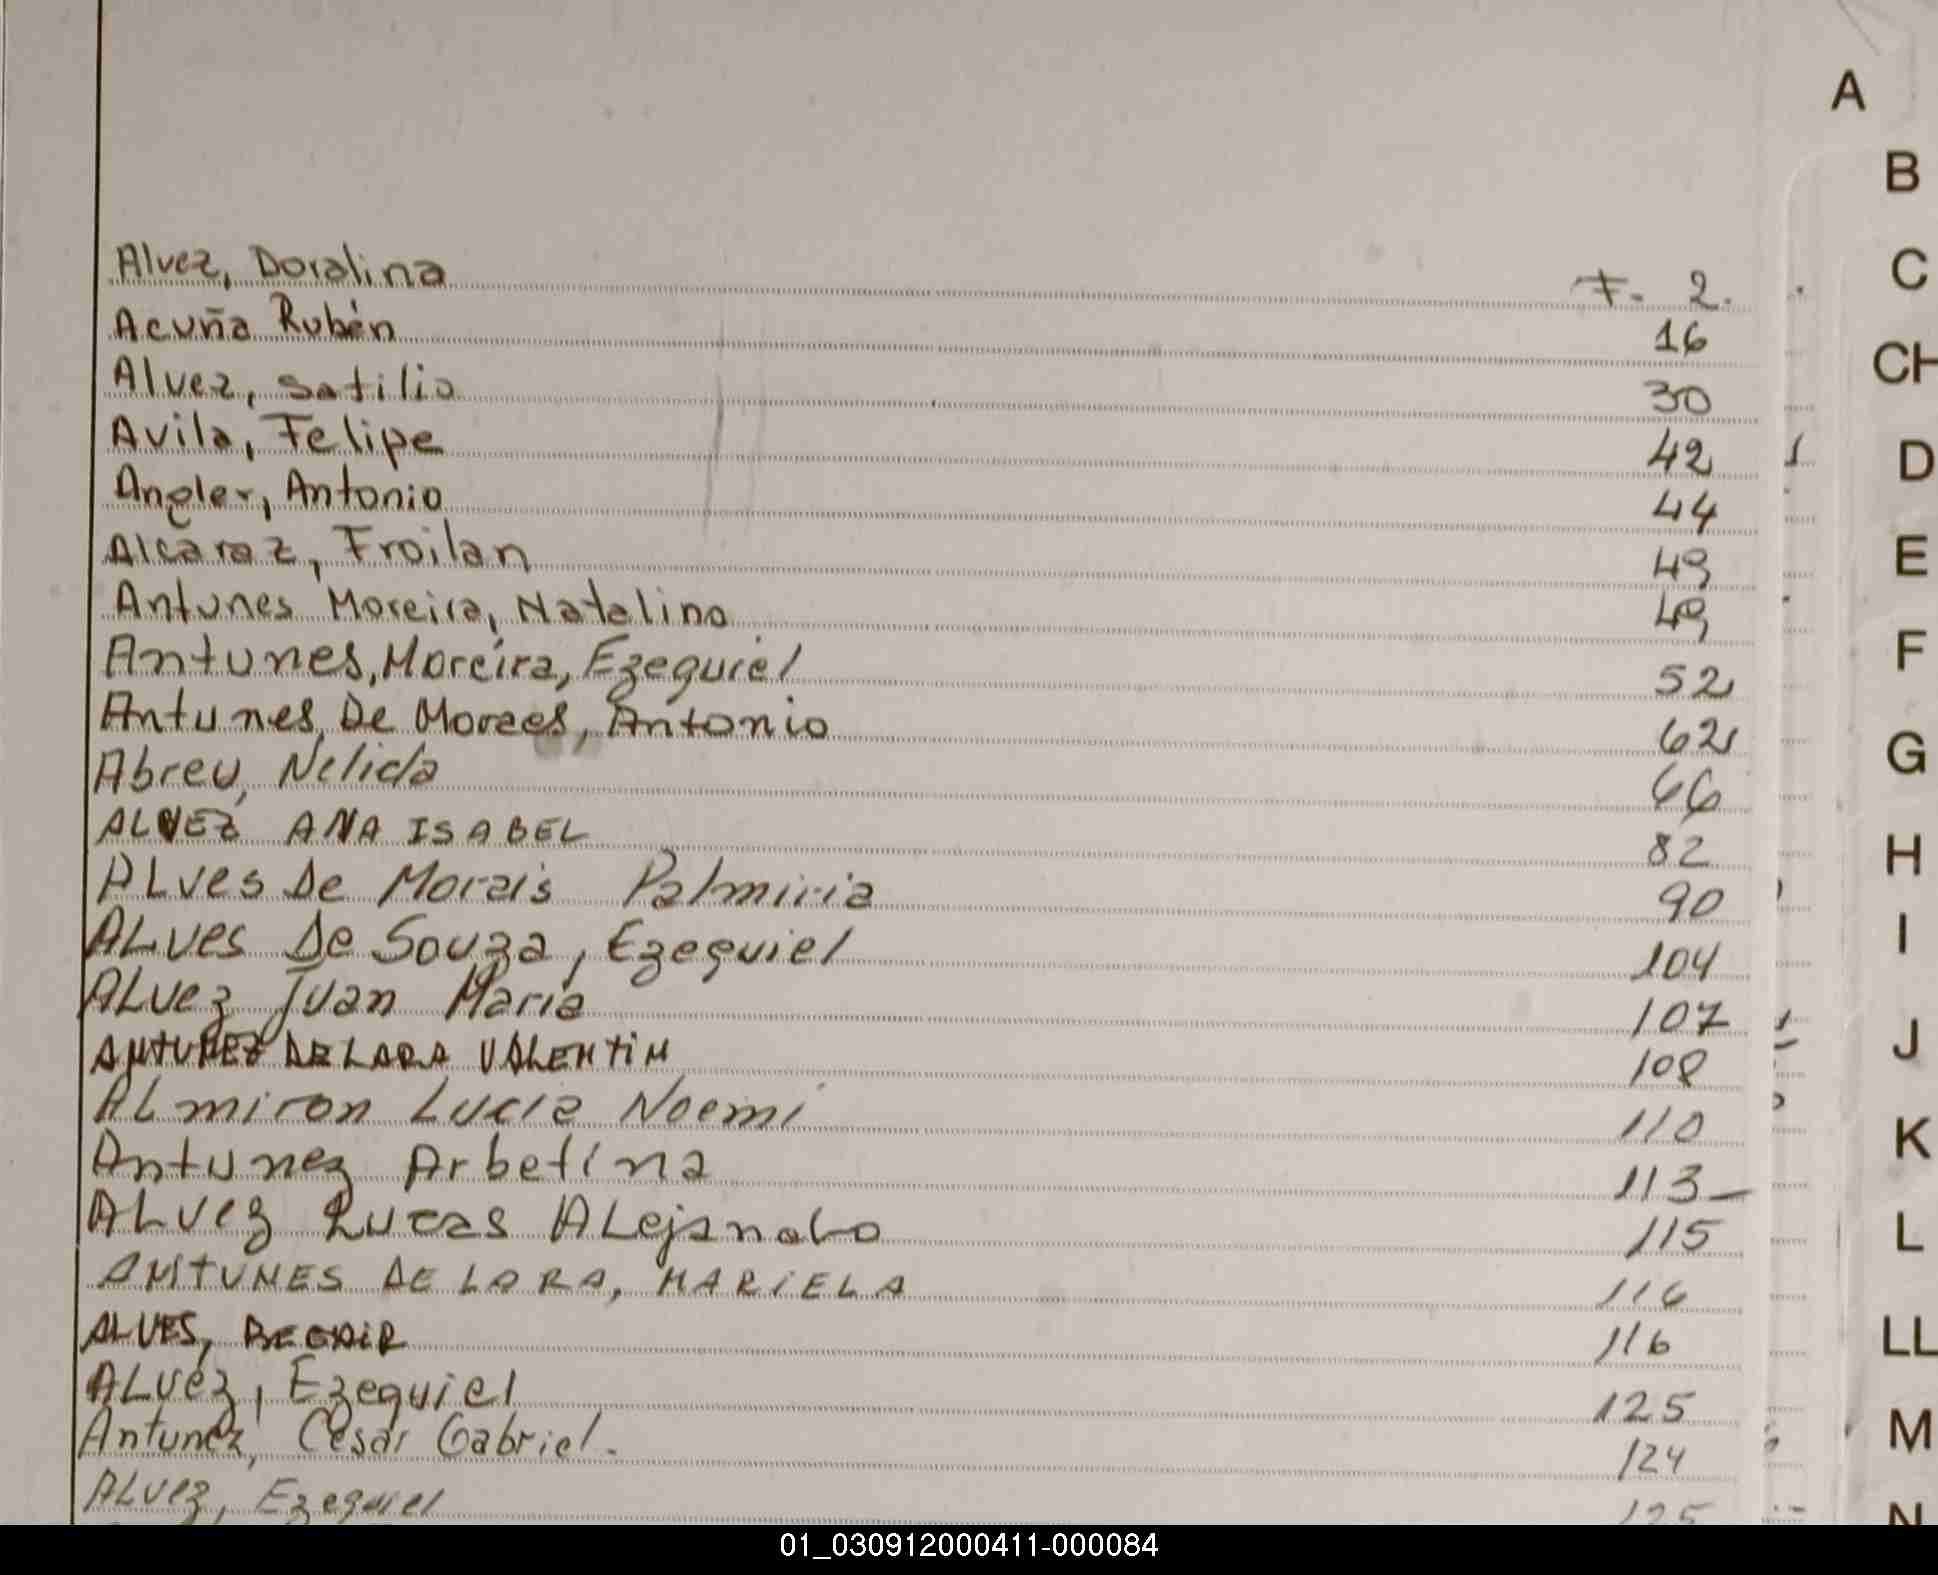 A
B
C
CH
D
E
F
G
H
I
J
K
L
LL
M
N
Alvez, Doralina F. 2.
Acuña Rubén 16
Alvez, Satilio 30
Avila, Felipe 42
Angler, Antonio 44
Alcaraz, Froilan 49
Antunes Moreira, Natalino 49
Antunes, Moreira, Ezequiel 52
Antunes, De Moraes, Antonio 62
Abreu, Nelida 66
ALVEZ ANA ISABEL 82
ALves De Morais Palmiria 90
ALves De Souza, Ezequiel 104
ALvez Juan Maria 107
ANTUNEZ DE LARA VALENTIN 108
ALmiron Lucia Noemi 110
Antunez Arbetina 113
ALvez Lucas ALejandro 115
ANTUNES DE LARA, MARIELA 116
ALVES, 116
ALvez, Ezequiel 125
Antunez, Cesar Gabriel. 124
ALvez, Ezequiel 125
01_030912000411-000084